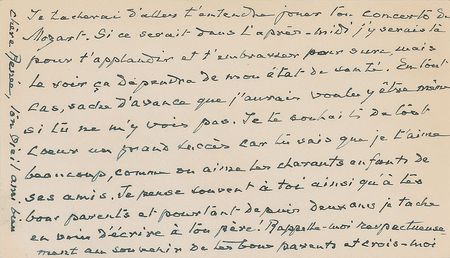 Je tacherai d'aller t'entendre jouer ton Concerto de
Mozart. Si ce serait dans l'après-midi j'y serais là
pour t'applaudir et t'embrasser pour sure, mais
le soir ça dépendra de mon état de santé. En tout
cas, sache d'avance que j'aurais voulu y être même
si tu ne m'y vois pas. Je te souhaite de tout
coeur un grand succès car tu sais que je t'aime
beaucoup, comme on aime les charants enfants de
ses amis. Je pense souvent à toi ainsi qu'à tes
bons parents et pourtant depuis deux ans je tache
en vain d'écrire à ton père! Rappelle-moi respectueuse-
ment au souvenir de tes bons parents et crois-moi
chère ton vieil ami bien